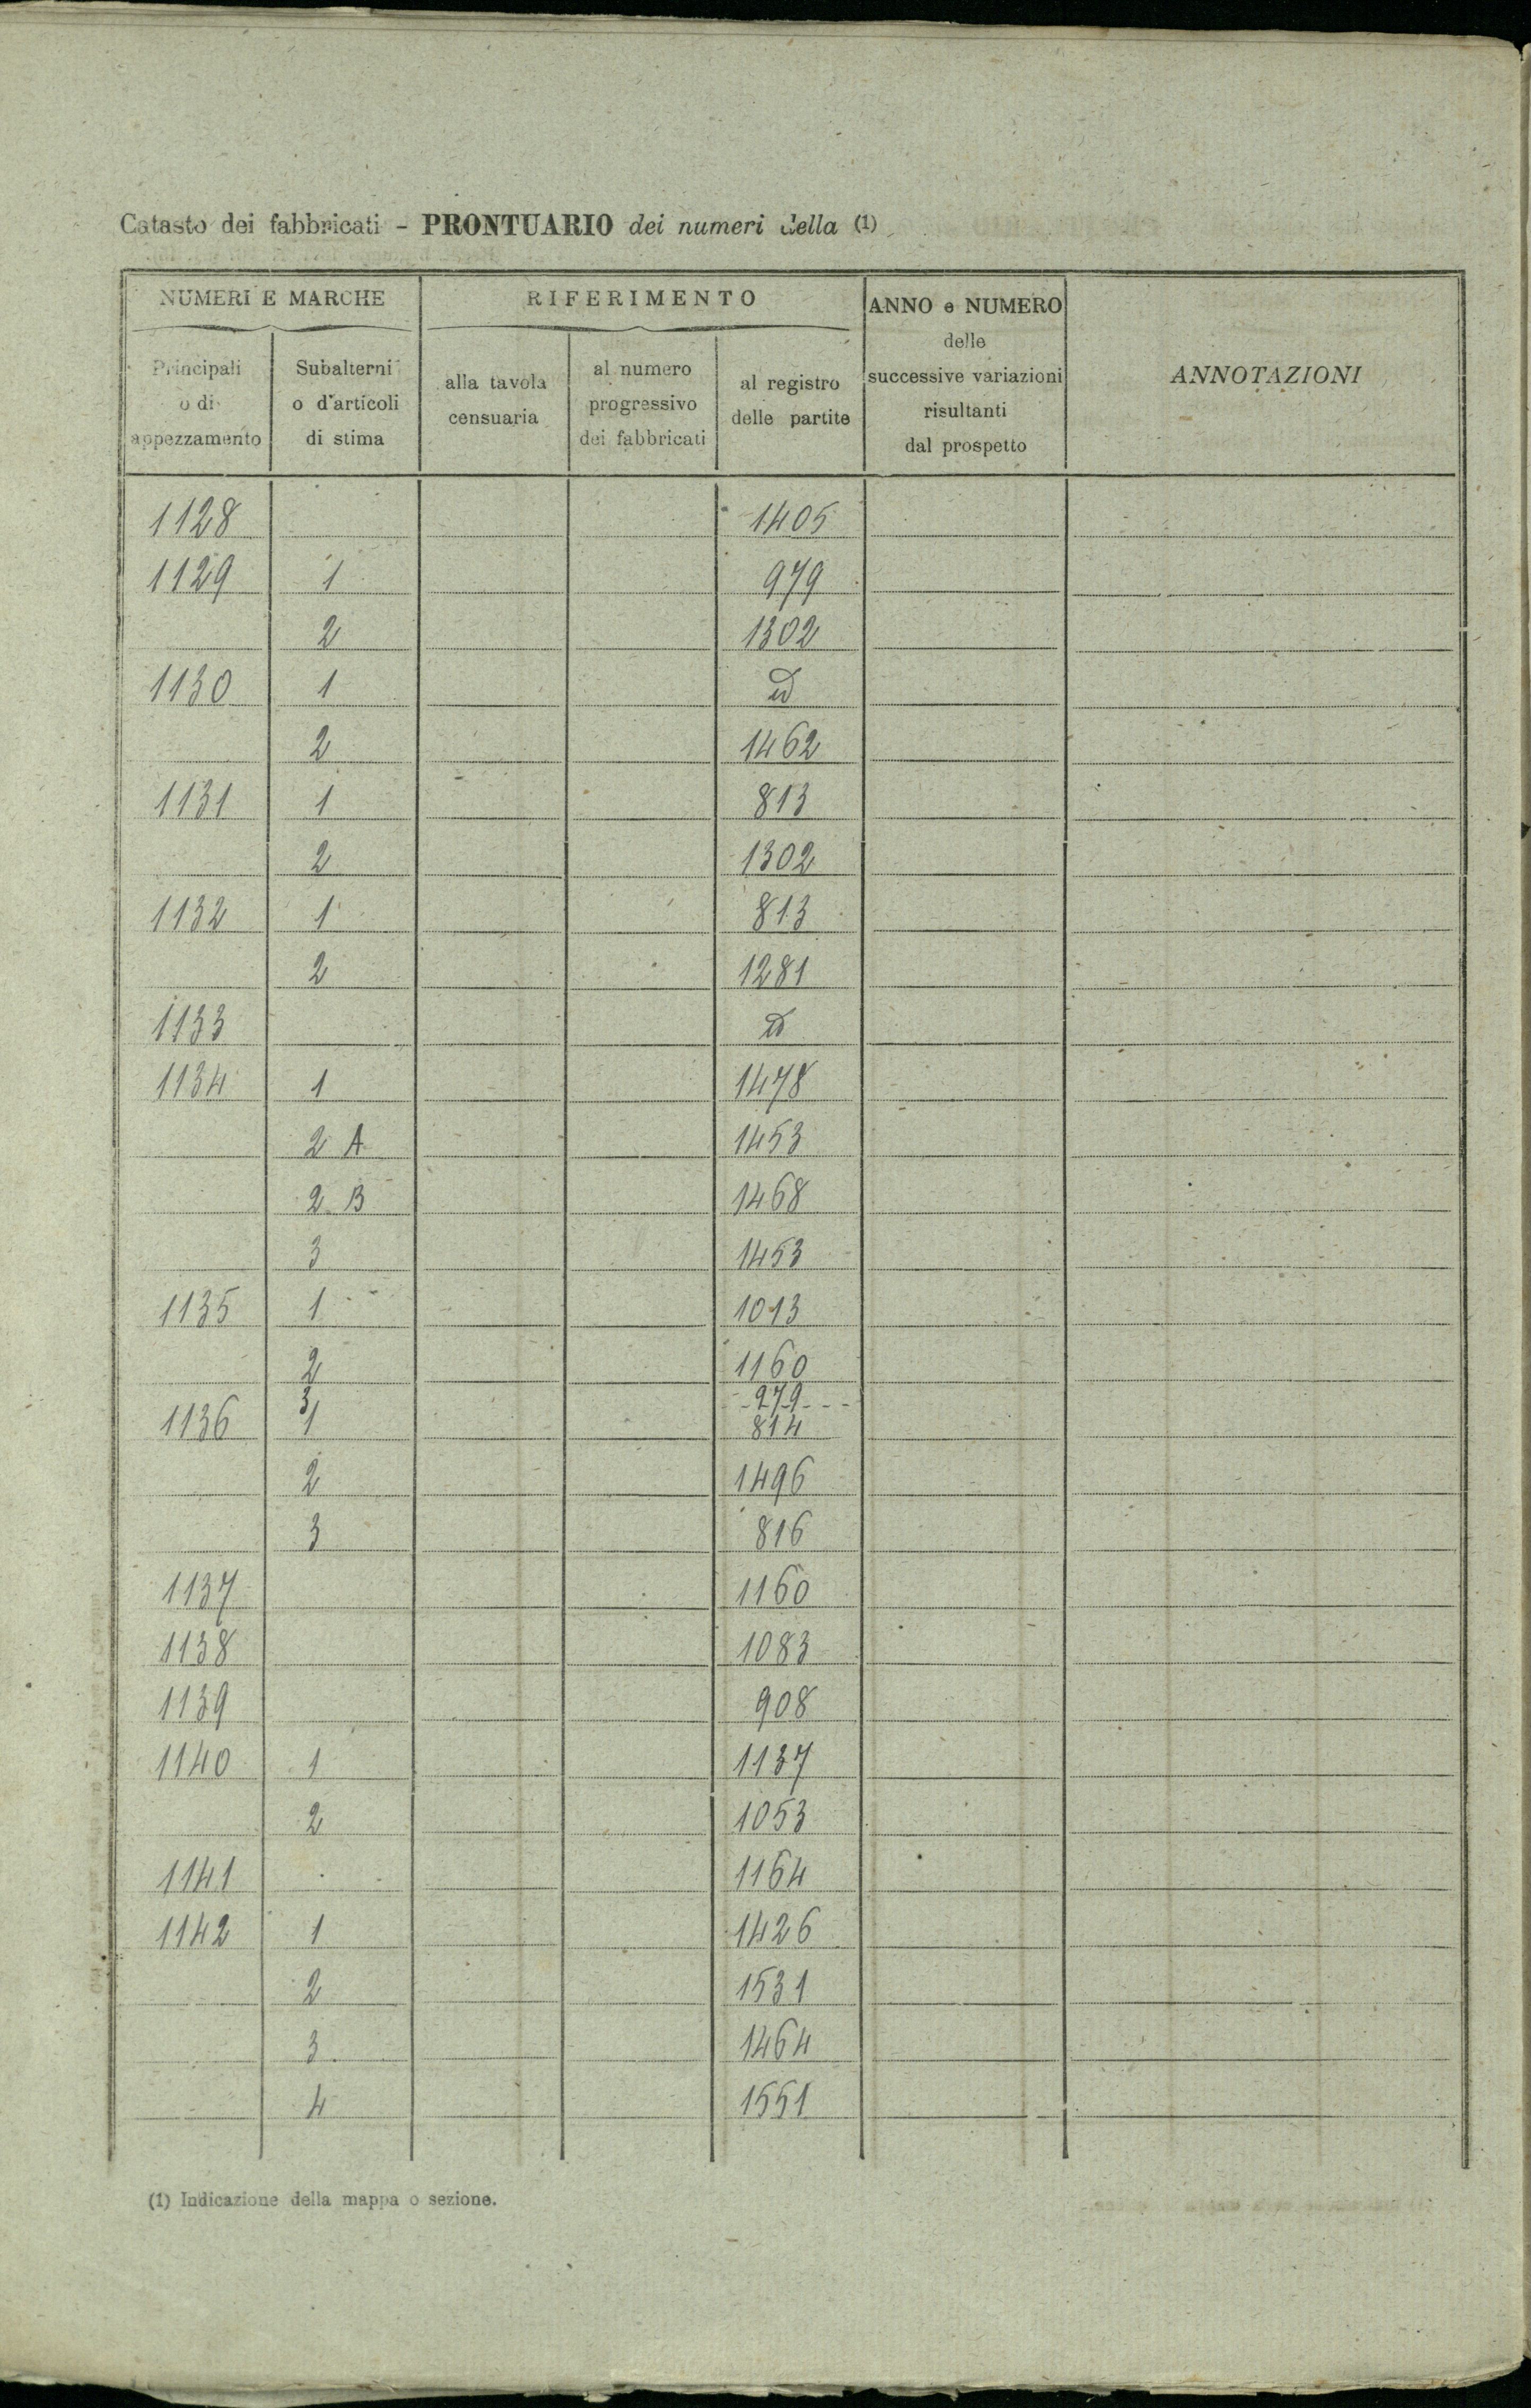 Catasto dei fabbricati - PRONTUARIO dei numeri della (1)
NUMERI E MARCHE RIFERIMENTO ANNO e NUMERO delle successive variazioni risultanti dal prospetto ANNOTAZIONI
Principali o di appezzamento Subalterni o d'articoli di stima alla tavola censuaria al numero progressivo dei fabbricati al registro delle partite
1128 1405
1129 1 979
2 1302
1130 1 id
2 1462
1131 1 813
2 1302
1132 1 813
2 1281
1133 id
1134 1 1478
2 A 1453
2 B 1468
3 1453
1135 1 1013
2 1160
3 979
1136 1 814
2 1496
3 816
1137 1160
1138 1083
1139 908
1140 1 1137
2 1053
1141 1164
1142 1 1426
2 1531
3 1464
4 1551
(1) Indicazione della mappa o sezione.